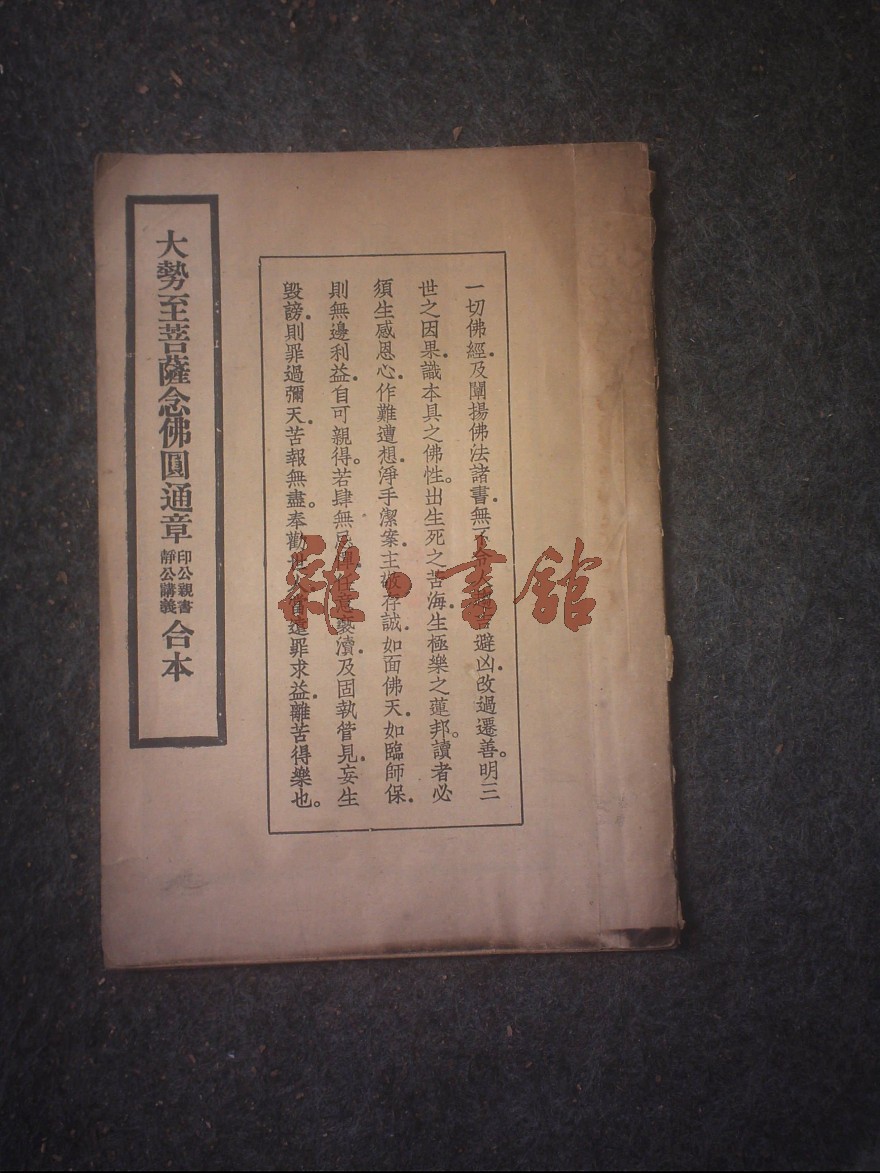 大勢至菩薩念佛圓通章 印公親書 靜公講義 合本
一切佛經．及闡揚佛法諸書．無不令人趨吉避凶．改過遷善。明三
世之因果．識本具之佛性。出生死之苦海．生極樂之蓮邦。讀者必
須生感恩心．作難遭想．淨手潔案．主敬存誠．如面佛天．如臨師保．
則無邊利益．自可親得。若肆無忌憚．任意褻瀆．及固執管見．妄生
毀謗．則罪過彌天．苦報無盡。奉勸世人．當遠罪求益．離苦得樂也。
雜·書館